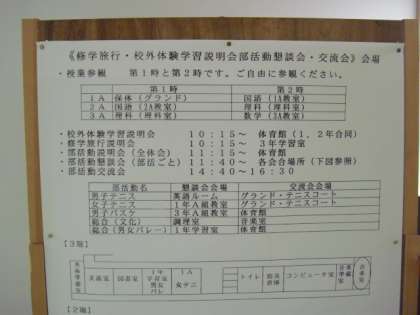 《修学旅行・校外体験学習説明会部活動懇談会・交流会》会場
・授業参観　第1時と第2時です。ご自由に参観ください。
第1時　第2時
1A　保体(グランド)　国語(1A教室)
2A　国語(2A教室)　理科(理科室)
3A　理科(理科室)　数学(3A教室)
・校外体験学習説明会　10:15~　体育館(1,2年合同)
・修学旅行説明会　10:15~　3年学習室
・部活動説明会(全体会)　11:15~　体育館
・部活動懇談会(部活ごと)　11:40~　各会合場所(下図参照)
・部活動交流会　14:40~16:30
部活動名　懇談会会場　交流会会場
男子テニス　英語ルーム　グランド・テニスコート
女子テニス　1年A組教室　グランド・テニスコート
男子バスケ　3年A組教室　体育館
総合(文化)　調理室　音楽室
総合(男女バレー)　1年学習室　体育館
【3階】
美術室　図書室　1年学習室男女バレ　1A女テニ　トイレ　コンピュータ室　音楽室
【2階】